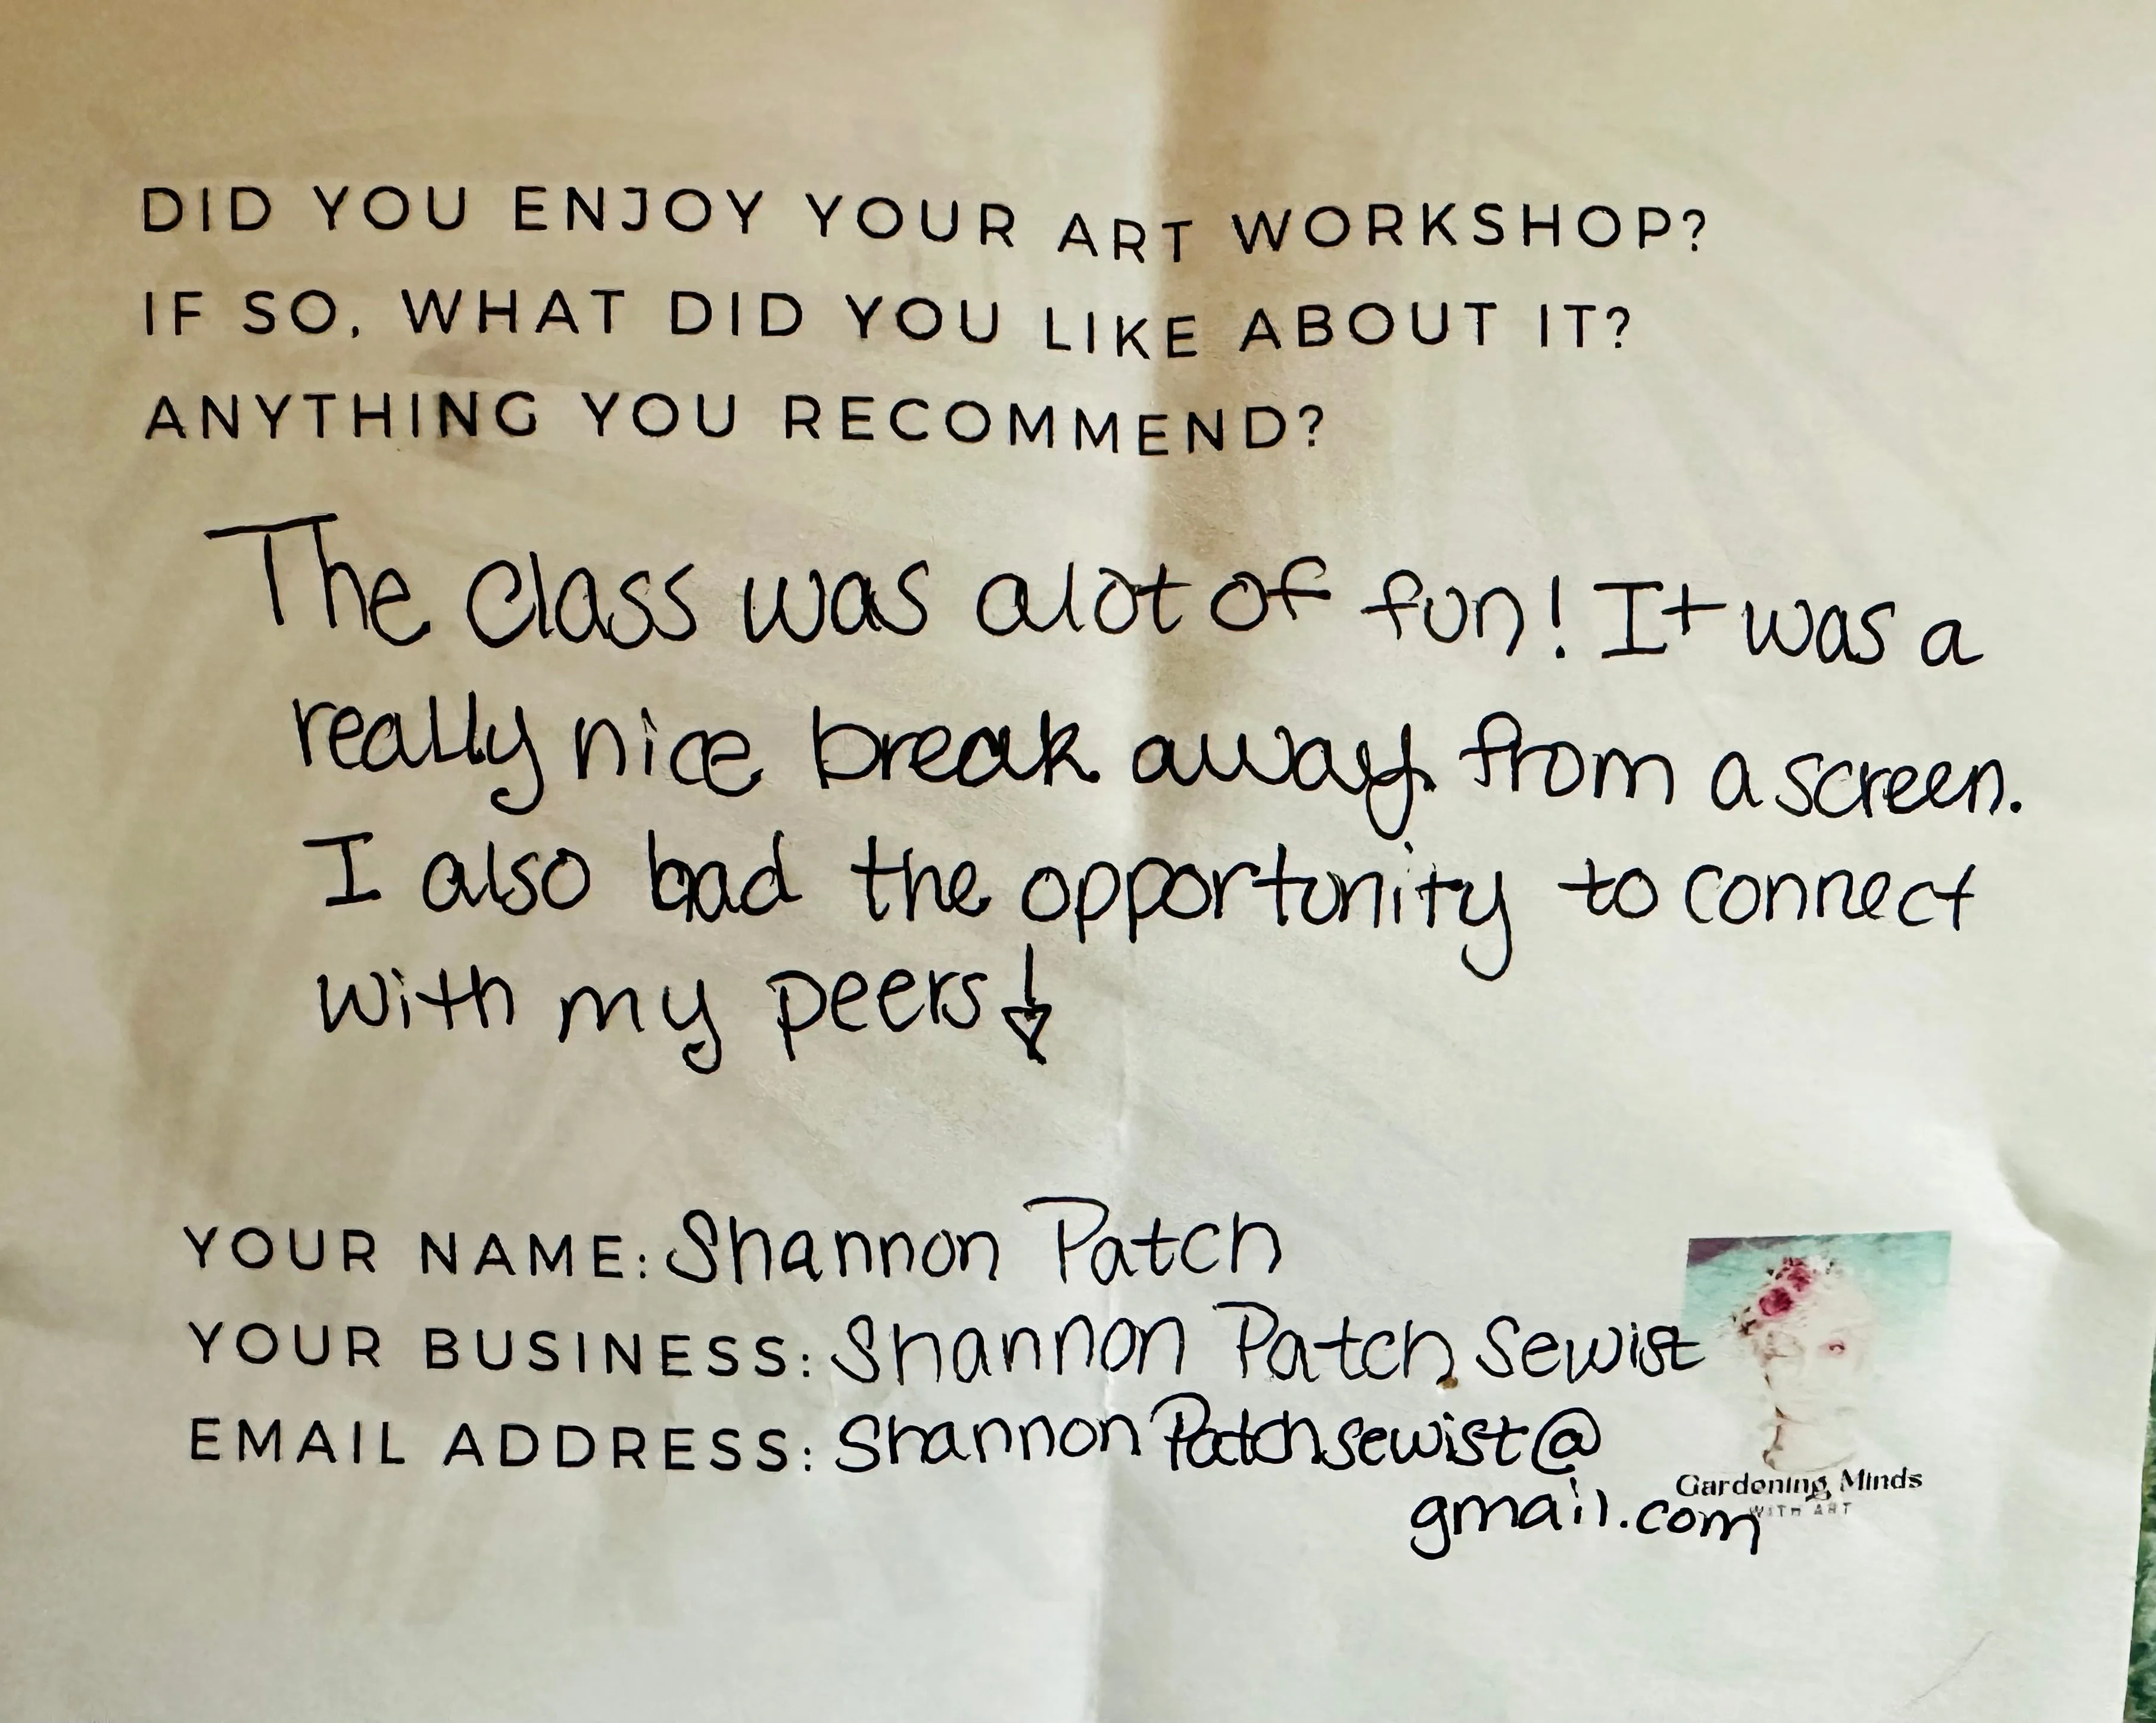 DID YOU ENJOY YOUR ART WORKSHOP?
IF SO, WHAT DID YOU LIKE ABOUT IT?
ANYTHING YOU RECOMMEND?
The class was alot of fun! It was a
really nice break away from a screen.
I also had the opportunity to connect
with my peers!
YOUR NAME: Shannon Patch
YOUR BUSINESS: Shannon Patch Sewist
EMAIL ADDRESS: ShannonPatchsewist@
gmail.com
Gardening Minds
WITH ART